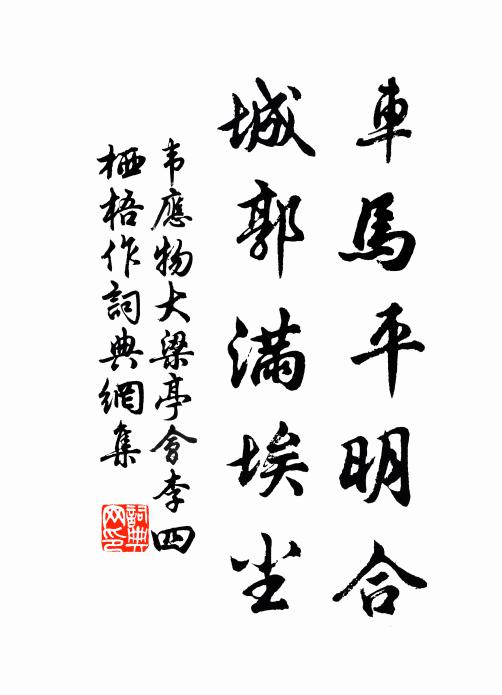 車馬平明合
城郭滿埃尘
韦應物大梁亭會李四
栖梧作詞典網集
詞典
网印